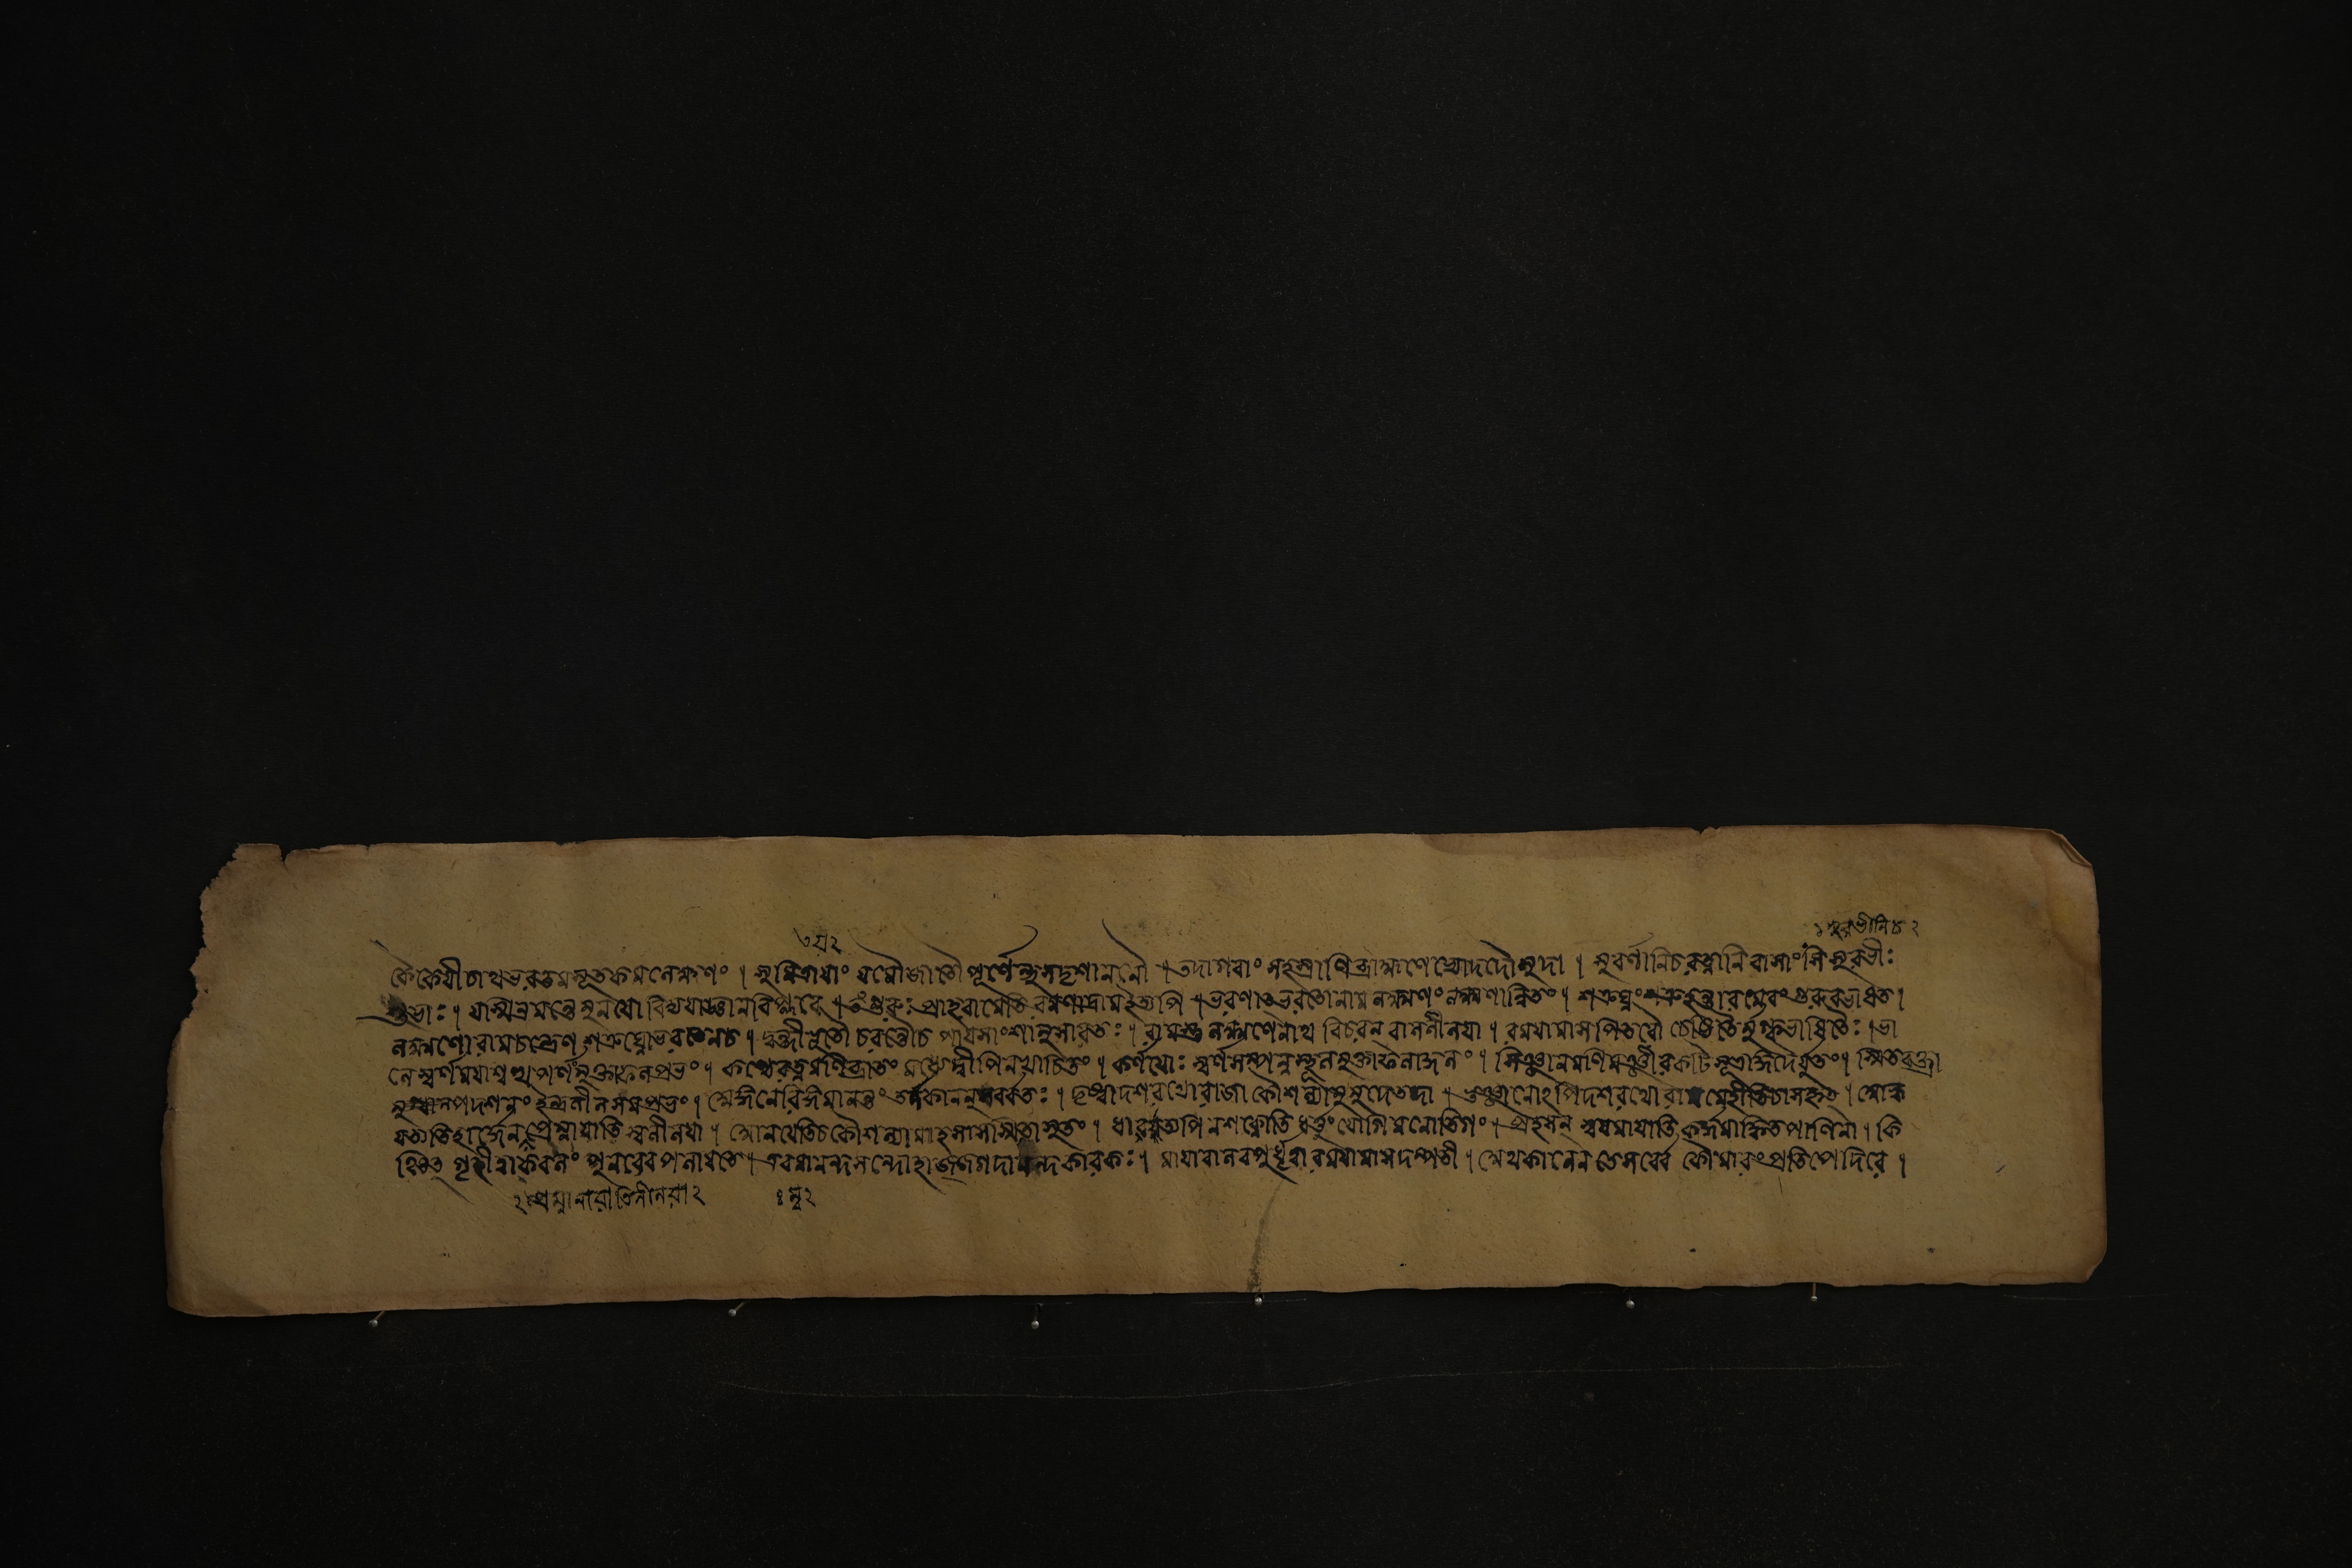 কৈকেযীচাথভরতমসূতকমলেক্ষণং । সুমিত্রাযাং যমৌজাতৌপূর্ণেন্দুসদৃশাননৌ । তদাগবাং সহস্রাণিব্রাহ্মণেভ্যোদদৌমুদা । সুবর্ণানিচরত্নানিবাসাংসি সুরভীঃ
শুভাঃ । যস্মিন্রমন্তেমুনযো বিদ্যযাজ্ঞানবিপ্লবে । তংগুরুঃ প্রাহরামেতি রমণাদ্রামইত্যপি । ভরণাদ্ভরতোনামলক্ষ্মণং লক্ষণান্বিতং । শত্রুঘ্নং শত্রুহন্তারমেবং গুরুরভাষত ।
লক্ষ্মণোরামচন্দ্রেণ শত্রুঘ্নোভরতেনচ । দ্বন্দ্বীভূতৌ চরন্তৌচ পাযসাংশানুসারতঃ । রামস্তু লক্ষ্মণেনাথ বিচরন্ বাললীলযা । রমযামাস পিতরৌ চেষ্টিতৈর্মুগ্ধভাষিতৈঃ । ভা
লেস্বর্ণমযাশ্বত্থপর্ণমুক্তাফলপ্রভং । কণ্ঠেরত্নমণিব্রাতং মধ্যেদ্বীপিনখাচিতং । কর্ণযোঃ স্বর্ণসম্পন্নস্থূলমুক্তাফলার্জ্জুনং । সিঞ্জানমণিমঞ্জীরকটিসূত্রাঙ্গদৈর্বৃতং । স্মিতবক্ত্রা
দশনং ইন্দ্রনীলসমপ্রভং । অঙ্গনেরিঙ্গমানন্তং তর্ণকাননুসর্ব্বতঃ । দৃষ্ট্বাদশরথোরাজা কৌশল্যামুমুদেতদা । ভুঞ্জানোঽপিদশরথো রামমেহীতিচাসকৃৎ । আহ্ব
যত্যতিহার্দেন প্রেম্নাযাতি স্বলীলযা । আনযেতিচকৌশল্যামাহসাসস্মিতাসুতং । ধাবত্যপিনশক্নোতি ধর্ত্তুং যোগিমনোতিগং । প্রহসন্ স্বযমাযাতি কর্দ্দমাঙ্কিতপাণিনা । কি
ঞ্চিৎ গৃহীত্বাকবলং পুনরেবপলাযতে । এবমানন্দসন্দোহ জগদানন্দকারকঃ । মাযাবালবপুর্ধৃত্বারমযামাসদম্পতী । অথকালেনতেসর্ব্বে কৌমারংপ্রতিপেদিরে ।